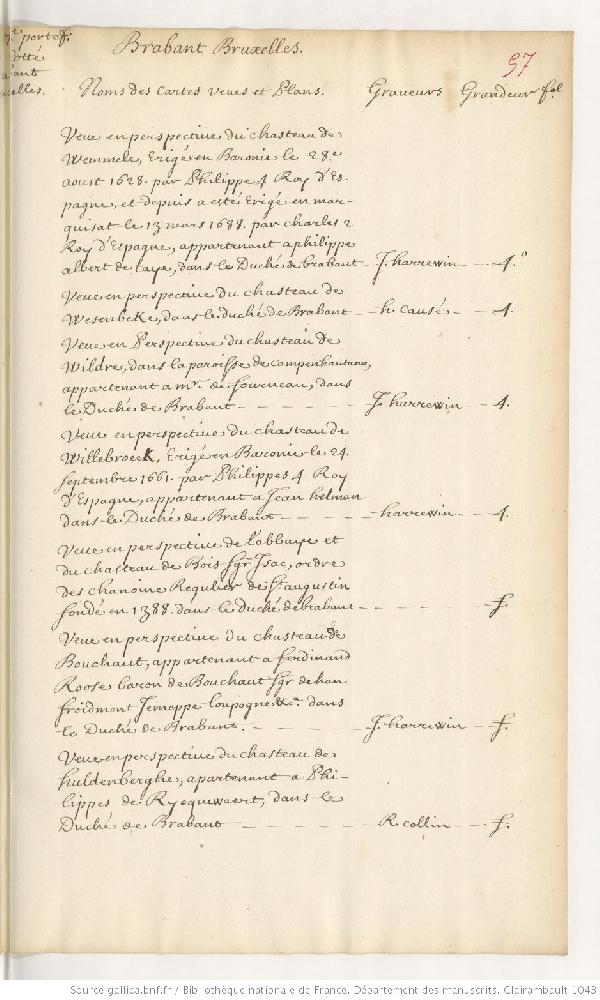 7.e portef.
Cotté
Brabant Bruxelles.
97
Noms des Cartes veues et Plans. Graveurs Grandeur fol
Veue en perspective du chasteau de
Wemmele, Erigé en Baronie le 28.e
aoust 1628. par Philippe 4 Roy d'Es-
pagne, et depuis a esté Erigé en mar-
quisat le 13 mars 1688. par charles 2
Roy d'Espagne, appartenant a philippe
albert de taye, dans le Duché de brabant - J. harrewin - 4.o
Veue en perspective du chasteau de
Wesenbeke, dans le duché de Brabant - h. causé - 4.
Veue en Perspective du chasteau de
Wildre, dans la paroisse de campenhautano,
appartenant a mr. de fourneau, dans
le Duché de Brabant - - - - J. harrewin - 4.
Veue en perspective du chasteau de
Willebroeck, Erigé en Baronie le 24.
septembre 1661. par Philippes 4 Roy
d'Espagne, appartenant a Jean helman
dans le Duché de Brabant - - - - harrewin - 4.
Veue en perspective de l'abbaye et
du chasteau de Bois sgr. Isac, ordre
des chanoine Regulier de St. augustin
fondé en 1388. dans le Duché de brabant - - - - f.
Veue en perspective du chasteau de
Bouchaut, appartenant a ferdinand
Roose baron de Bouchaut sgr de han
froidmont Jemeppe loupogne &a. dans
le Duché de Brabant. - - - - J. harrewin - f.
Veue en perspective du chasteau de
huldenberghe, apartenant a Phi-
lippes de Rycquewaert, dans le
Duché de Brabant - - - - R. collin - f.
Source gallica.bnf.fr / Bibliothèque nationale de France. Département des manuscrits. Clairambault 1043